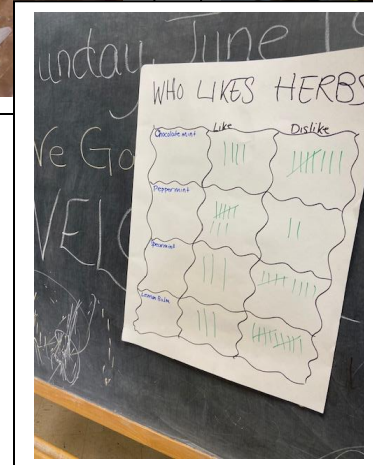 unday, June 19
Ve Go
WHO LIKES HERBS
Like Dislike
Chocolate mint
Peppermint
VEL
Spearmint
Lemon Balm